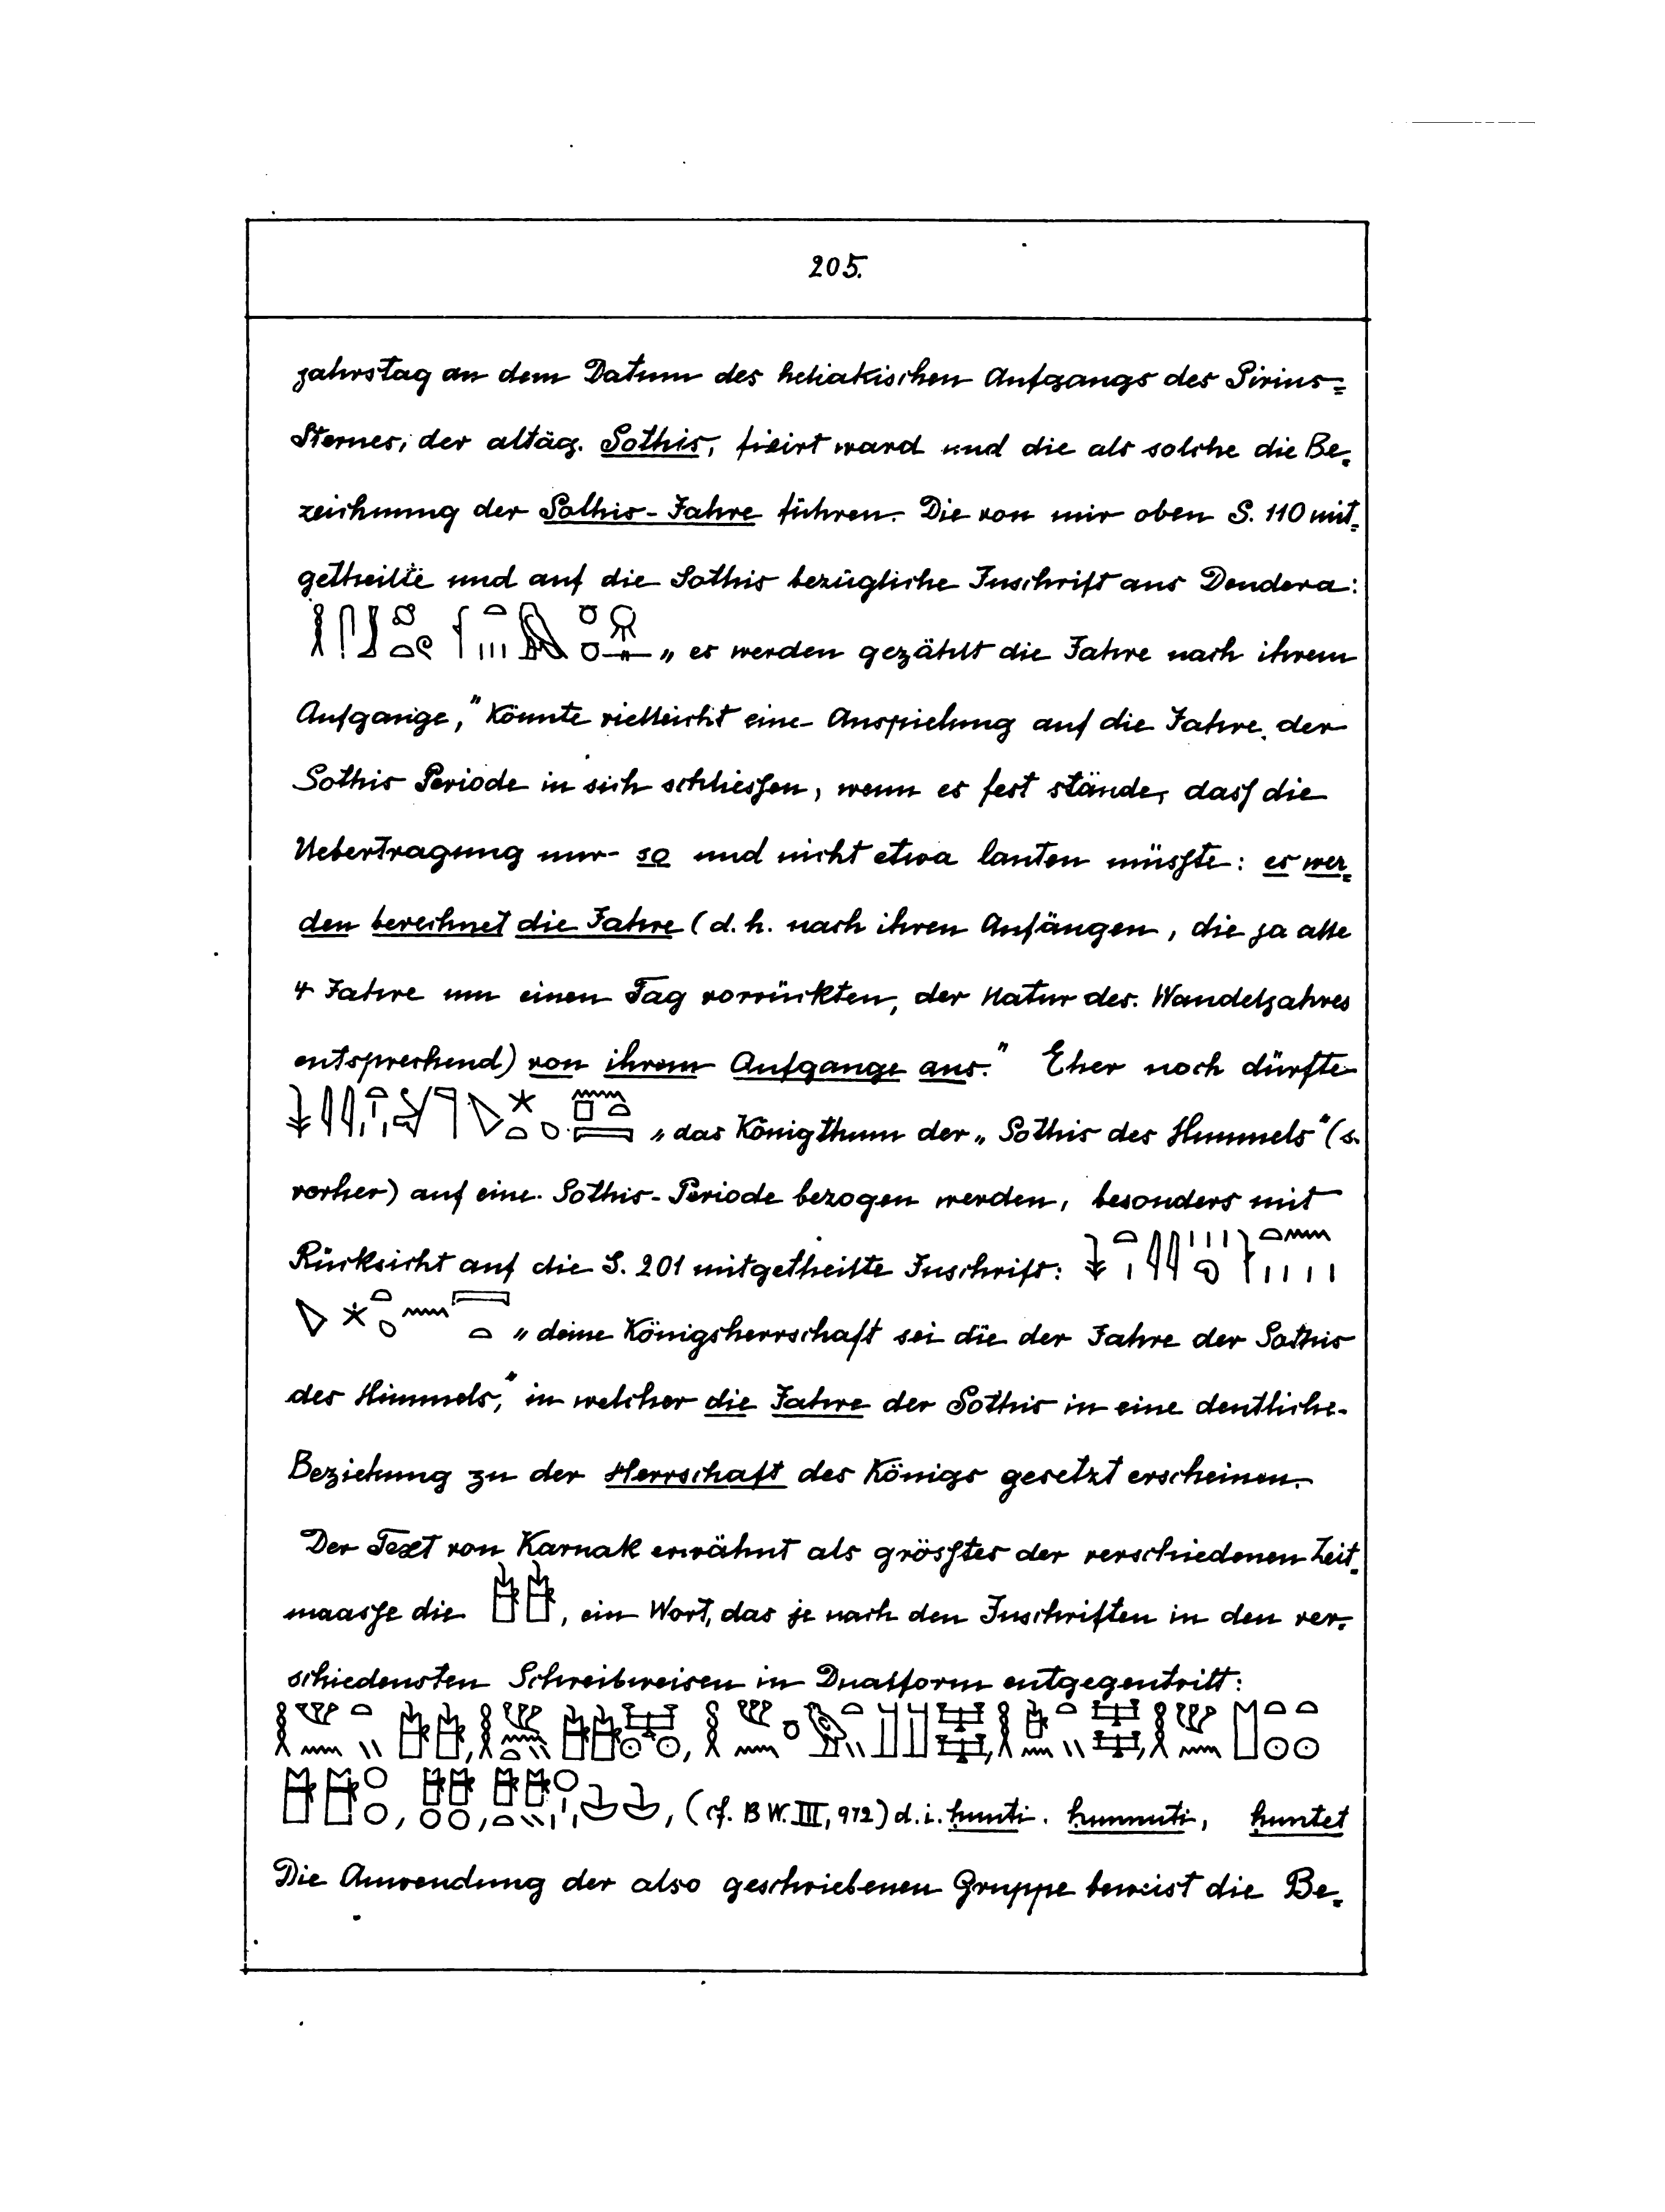 205.
jahrstag an dem Datum des heliakischen Aufgangs des Sirius=
Sternes, der altäg. Sothis, fixirt ward und die als solche die Be=
zeichnung der Sothis-Jahre führen. Die von mir oben S. 110 mit=
getheilte und auf die Sothis bezügliche Inschrift aus Dendera:
„es werden gezählt die Jahre nach ihrem
Aufgange," könnte vielleicht eine Anspielung auf die Jahre der
Sothis Periode in sich schliessen, wenn es fest stände, dass die
Uebertragung nur so und nicht etwa lauten müsste: es wer=
den berechnet die Jahre (d. h. nach ihren Anfängen, die ja alle
4 Jahre um einen Tag vorrückten, der Natur des Wandeljahres
entsprechend) von ihrem Aufgange aus." Eher noch dürfte
„das Königthum der „Sothis des Himmels" (s.
vorher) auf eine Sothis-Periode bezogen werden, besonders mit
Rücksicht auf die S. 201 mitgetheilte Inschrift:
„deine Königsherrschaft sei die der Jahre der Sothis
des Himmels," in welcher die Jahre der Sothis in eine deutliche
Beziehung zu der Herrschaft des Königs gesetzt erscheinen.
Der Text von Karnak erwähnt als grösstes der verschiedenen Zeit=
maasse die , ein Wort, das je nach den Inschriften in den ver=
schiedensten Schreibweisen in Dualform entgegentritt:
(cf. B W. III, 972) d. i. ḥunti. ḥunnuti, ḥuntet
Die Anwendung der also geschriebenen Gruppe beweist die Be=